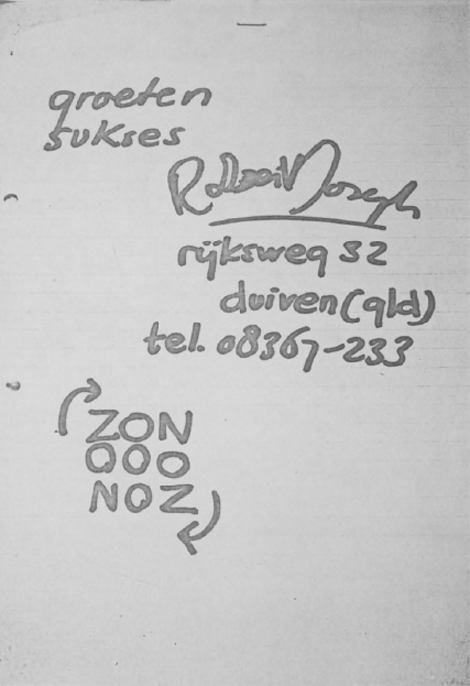 groeten
sukses
Robbert Joseph
rijksweg 32
duiven (gld)
tel. 08367-233
ZON
OOO
NOZ